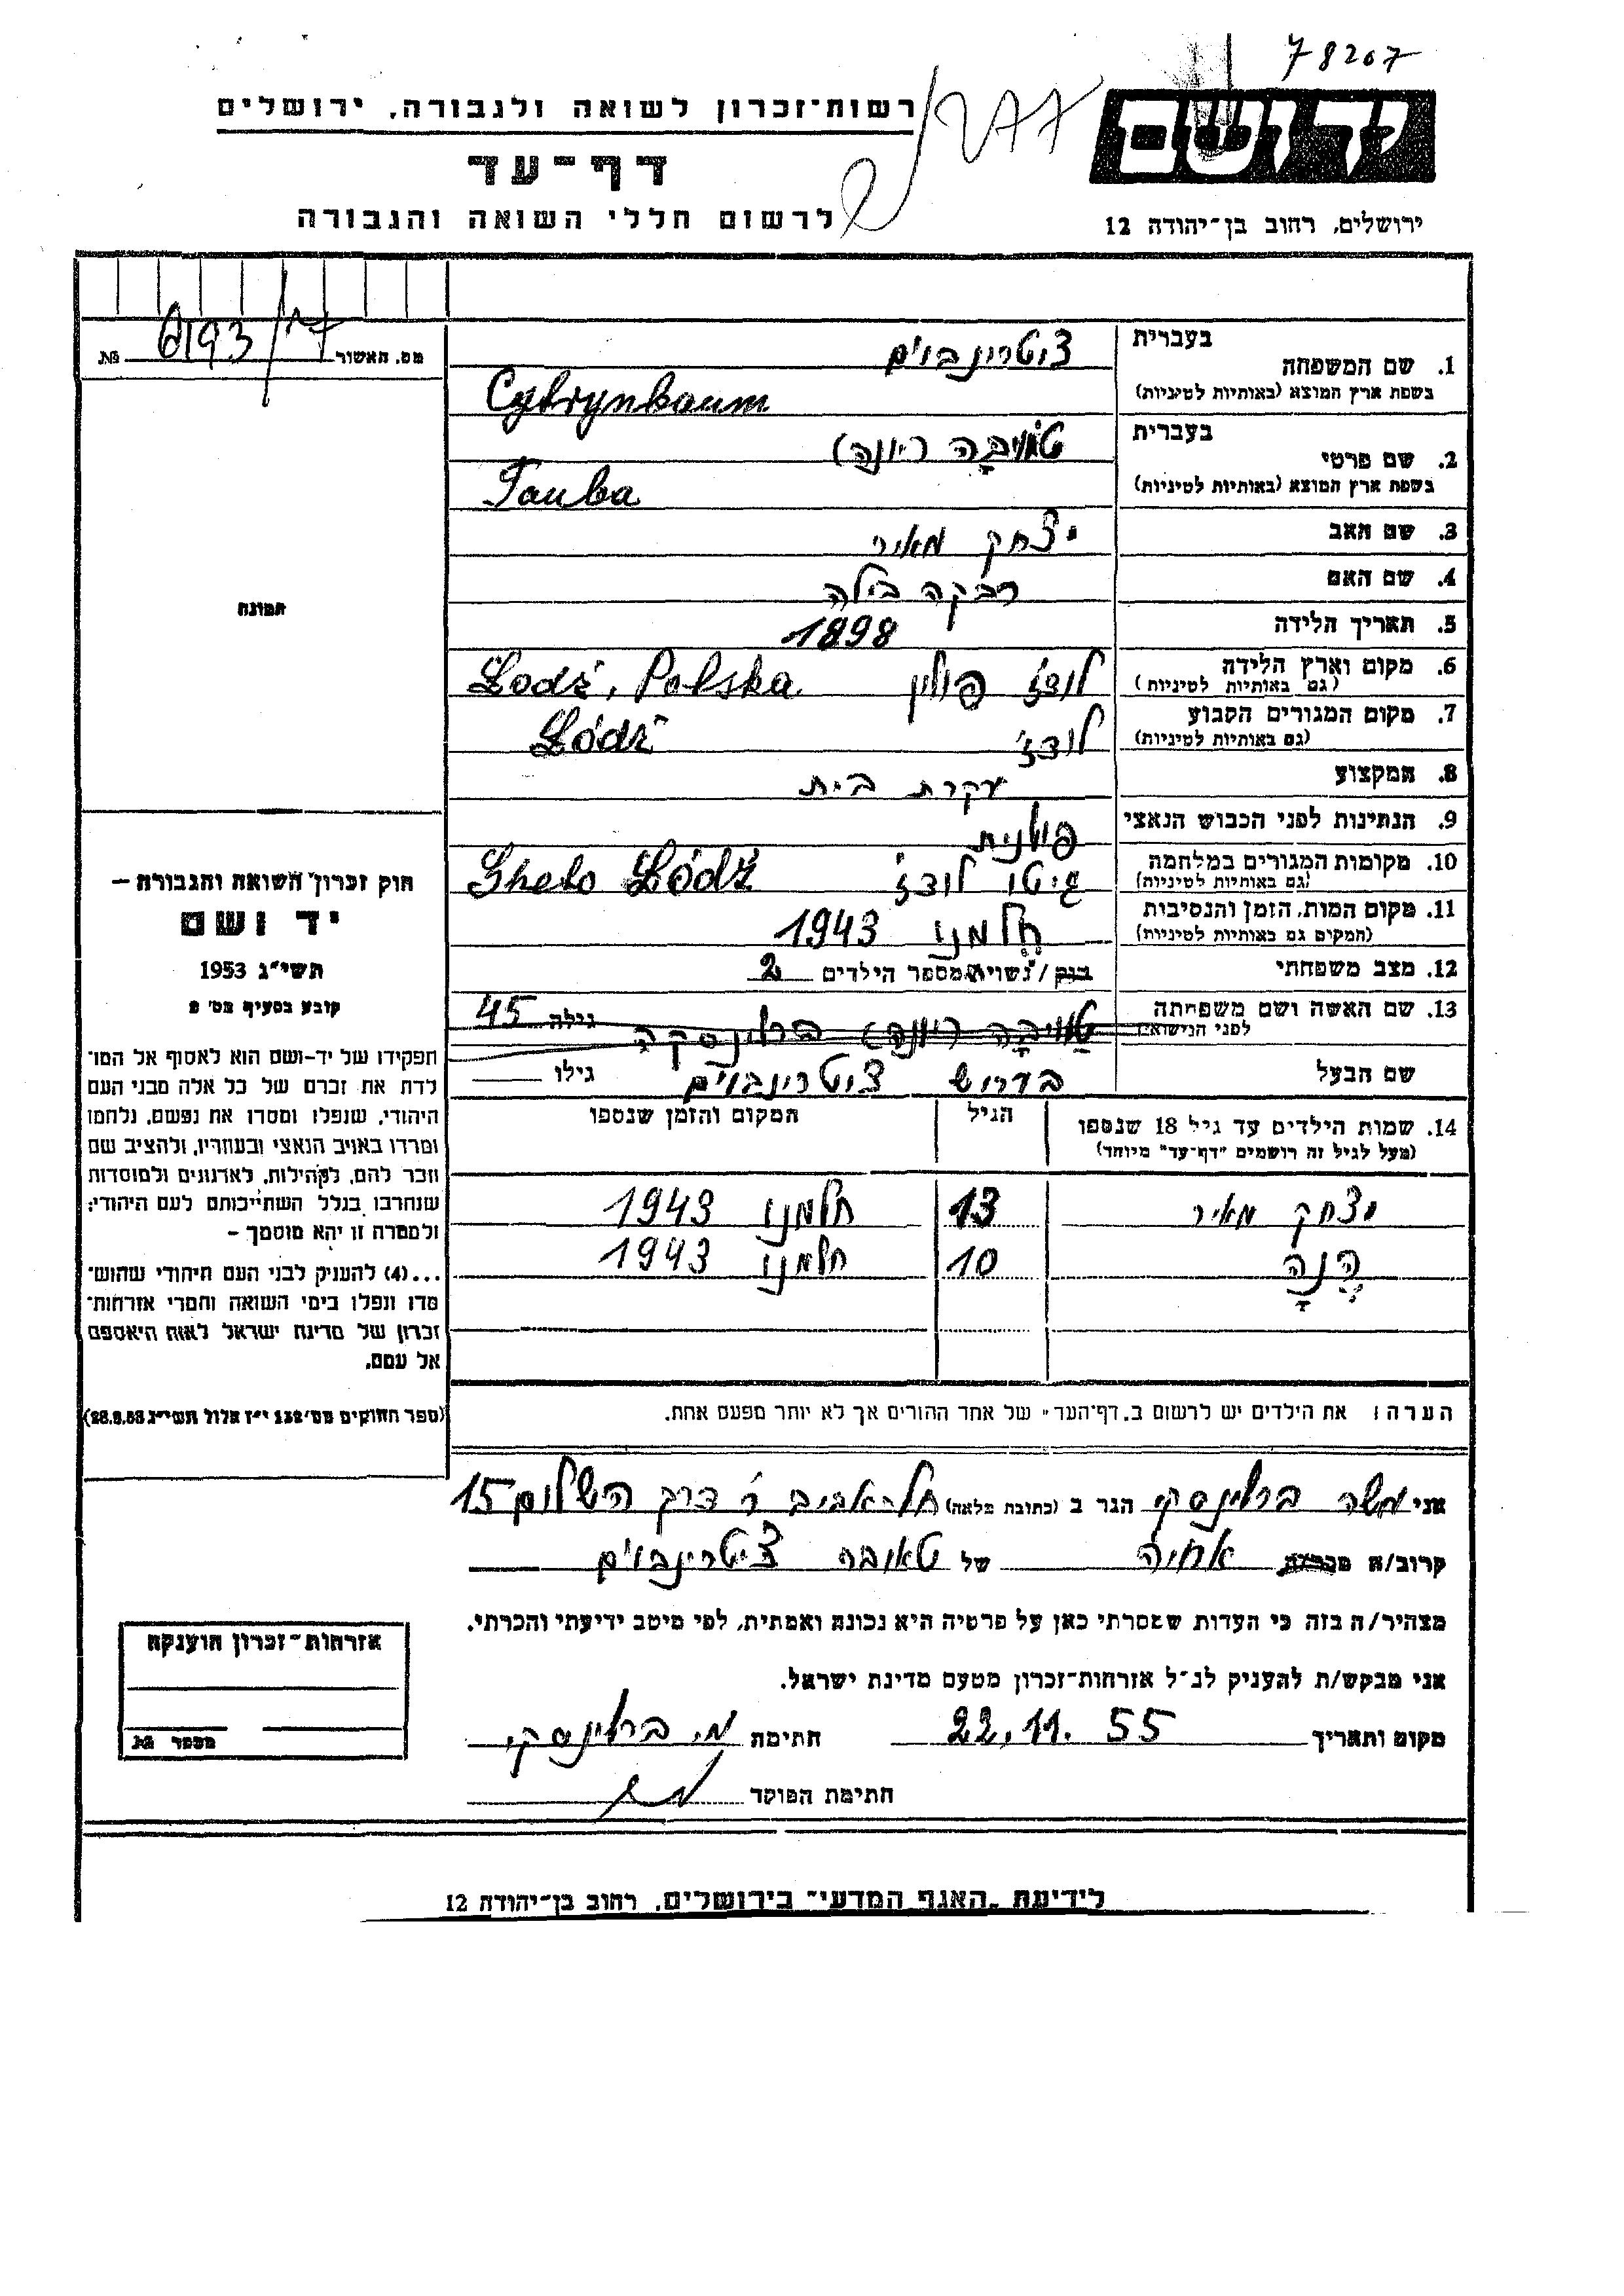 78207
יד ושם
רשות־זכרון לשואה ולגבורה, ירושלים
דף־עד
לרשום חללי השואה והגבורה
ירושלים, רחוב בן־יהודה 12
מס. האשור № 6193/
1. שם המשפחה
בעברית
ציטרינבוים
בשפת ארץ המוצא (באותיות לטיניות)
Cytrynbaum
2. שם פרטי
בעברית
טויבה (יונה)
בשפת ארץ המוצא (באותיות לטיניות)
Tauba
3. שם האב יצחק מאיר
4. שם האם רבקה בילה
5. תאריך הלידה 1898
6. מקום וארץ הלידה לודז' פולין Łodź, Polska
(גם באותיות לטיניות)
7. מקום המגורים הקבוע לודז' Łódź
(גם באותיות לטיניות)
8. המקצוע עקרת בית
9. הנתינות לפני הכבוש הנאצי פולנית
10. מקומות המגורים במלחמה גיטו לודז' Gheto Łódź
(גם באותיות לטיניות)
11. מקום המות, הזמן והנסיבות חלמנו 1943
(המקום גם באותיות לטיניות)
12. מצב משפחתי רווק / נשוי מספר הילדים 2
13. שם האשה ושם משפחתה טויבה (יונה) ברלינסקה גילה 45
לפני הנישואים
שם הבעל ציטרינבוים גילו
14. שמות הילדים עד גיל 18 שנספו הגיל המקום והזמן שנספו
(מעל לגיל זה רושמים "דף־עד" מיוחד)
יצחק מאיר 13 חלמנו 1943
הנה 10 חלמנו 1943
הערה: את הילדים יש לרשום ב„דף־העד" של אחד ההורים אך לא יותר מפעם אחת.
אני משה ברלינסקי הגר ב (כתובת מלאה) תל־אביב דרך השלום 15
קרוב/ה אחיה של טאובה ציטרינבוים
מצהיר/ה בזה כי העדות שמסרתי כאן על פרטיה היא נכונה ואמתית, לפי מיטב ידיעתי והכרתי.
אני מבקש/ת להעניק לנ"ל אזרחות־זכרון מטעם מדינת ישראל.
מקום ותאריך 22.11.55 חתימה מ. ברלינסקי
חתימת הפוקד
תמונה
חוק זכרון השואה והגבורה —
יד ושם
תשי"ג 1953
קובע בסעיף מס' 2
תפקידו של יד־ושם הוא לאסוף אל המו־
לדת את זכרם של כל אלה מבני העם
היהודי, שנפלו ומסרו את נפשם, נלחמו
ומרדו באויב הנאצי ובעוזריו, ולהציב שם
וזכר להם, לקהילות, לארגונים ולמוסדות
שנחרבו בגלל השתייכותם לעם היהודי;
ולמטרה זו יהא מוסמך —
...(4) להעניק לבני העם היהודי שהוש־
מדו ונפלו בימי השואה והמרי אזרחות־
זכרון של מדינת ישראל לאות היאספם
אל עמם.
(ספר החוקים מס' 132 י"ז אלול תשי"ג 28.8.53)
אזרחות־זכרון הוענקה
מספר №
לידיעת „האגף המדעי" בירושלים, רחוב בן־יהודה 12